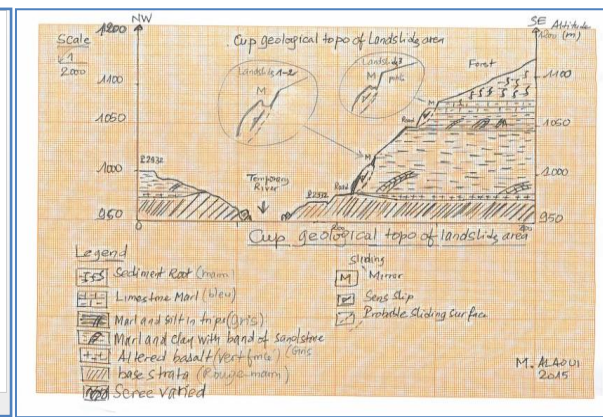 Scale
1
2000
NW
1200
Cup geological topo of Landslide area
SE
Altitude
1200 (m)
Landslide 1-2
M
Landslide 3
M
Forst
1100
1100
M
1050
Road
1050
M
1000
R2432
Temporary
River
Road
1000
950
950
0
Cup geological topo of landslide area
Legend
Sediment Root
Limestone Marl (bleu)
Marl and silt in trips (gris)
Marl and clay with band of sandstone
Altered basalt
base strata
Scree varied
sliding
M Mirror
Sens slip
Probable sliding surface
M. ALAOUI
2015